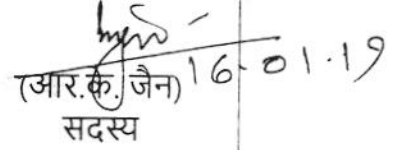 (आर.के. जैन) 16.01.19
सदस्य